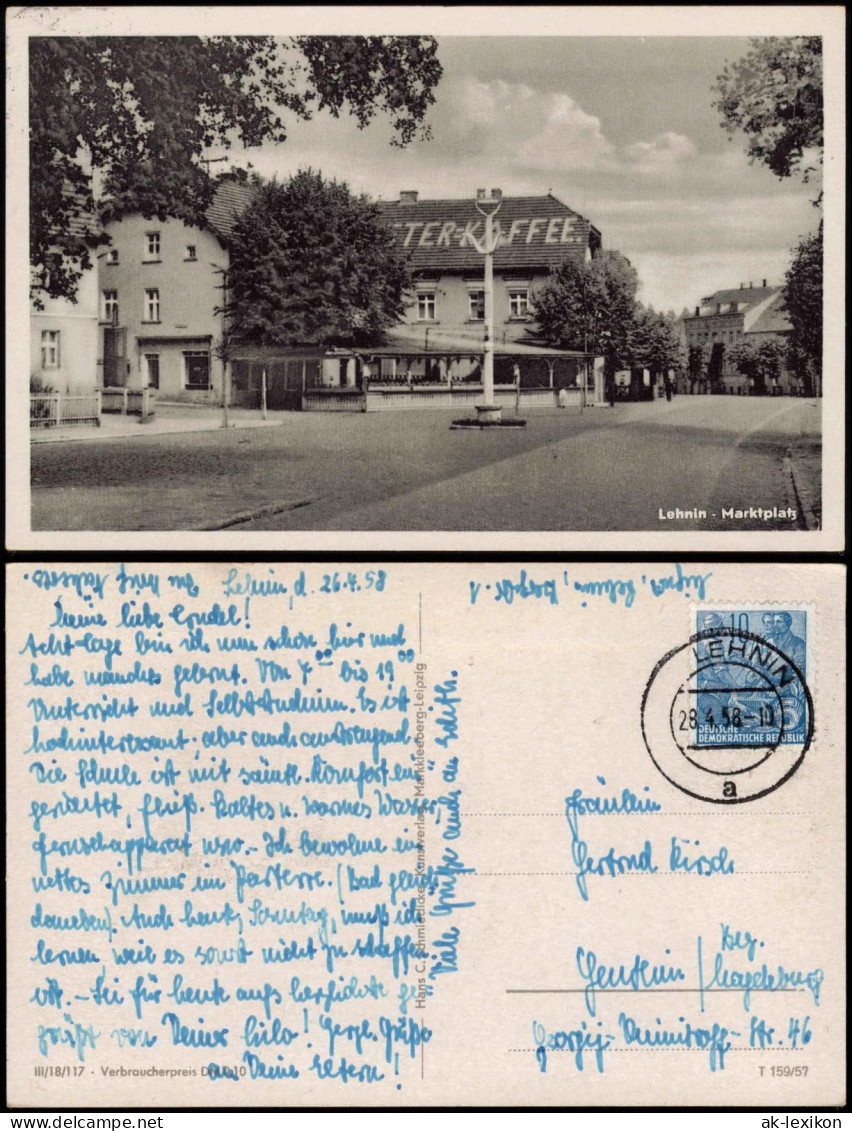 TER-KAFFEE.
Lehnin - Marktplatz
Lehnin, d. 26.4.58
Meine liebe !
Acht Tage bin ich nun schon hier und
habe manches gelernt. Von 7⁰⁰ bis 19⁰⁰
Unterricht und Selbststudium. Es ist
hochinteressant aber auch anstrengend
Die Schule ist mit sämtl. Komfort ein
gerichtet, fließ. kaltes u. warmes Wasser,
Fernsehapparat usw. - Ich bewohne ein
nettes Zimmer im Parterre. (Bad gleich
daneben). Auch heute, Sonntag, muß ich
lernen, weil es sonst nicht zu schaffen
ist. - Sei für heute aufs herzlichste ge
grüßt von Deiner Lilo! Herzl. Grüße
an Deine Eltern!
Viele Grüße auch an Edith.
III/18/117 · Verbraucherpreis DM 0,10
Hans C. Schmiedicke, Kunstverlag, Markkleeberg-Leipzig
10
DEUTSCHE
DEMOKRATISCHE REPUBLIK
5
LEHNIN
28.4.58-10
a
Fräulein
Gertrud Kirsch
Genthin / Bez.
Magdeburg
Georgij-Dimitroff-Str. 46
T 159/57
ak-lexikon